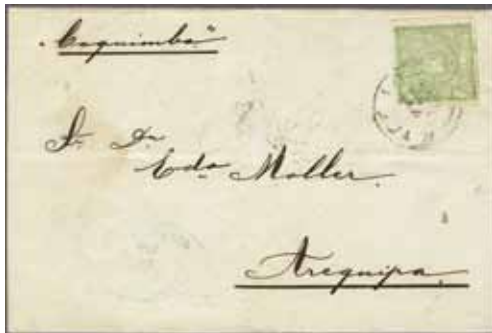 "Coquimbo"
Sr. Dn
Edo Moller.
Arequipa.